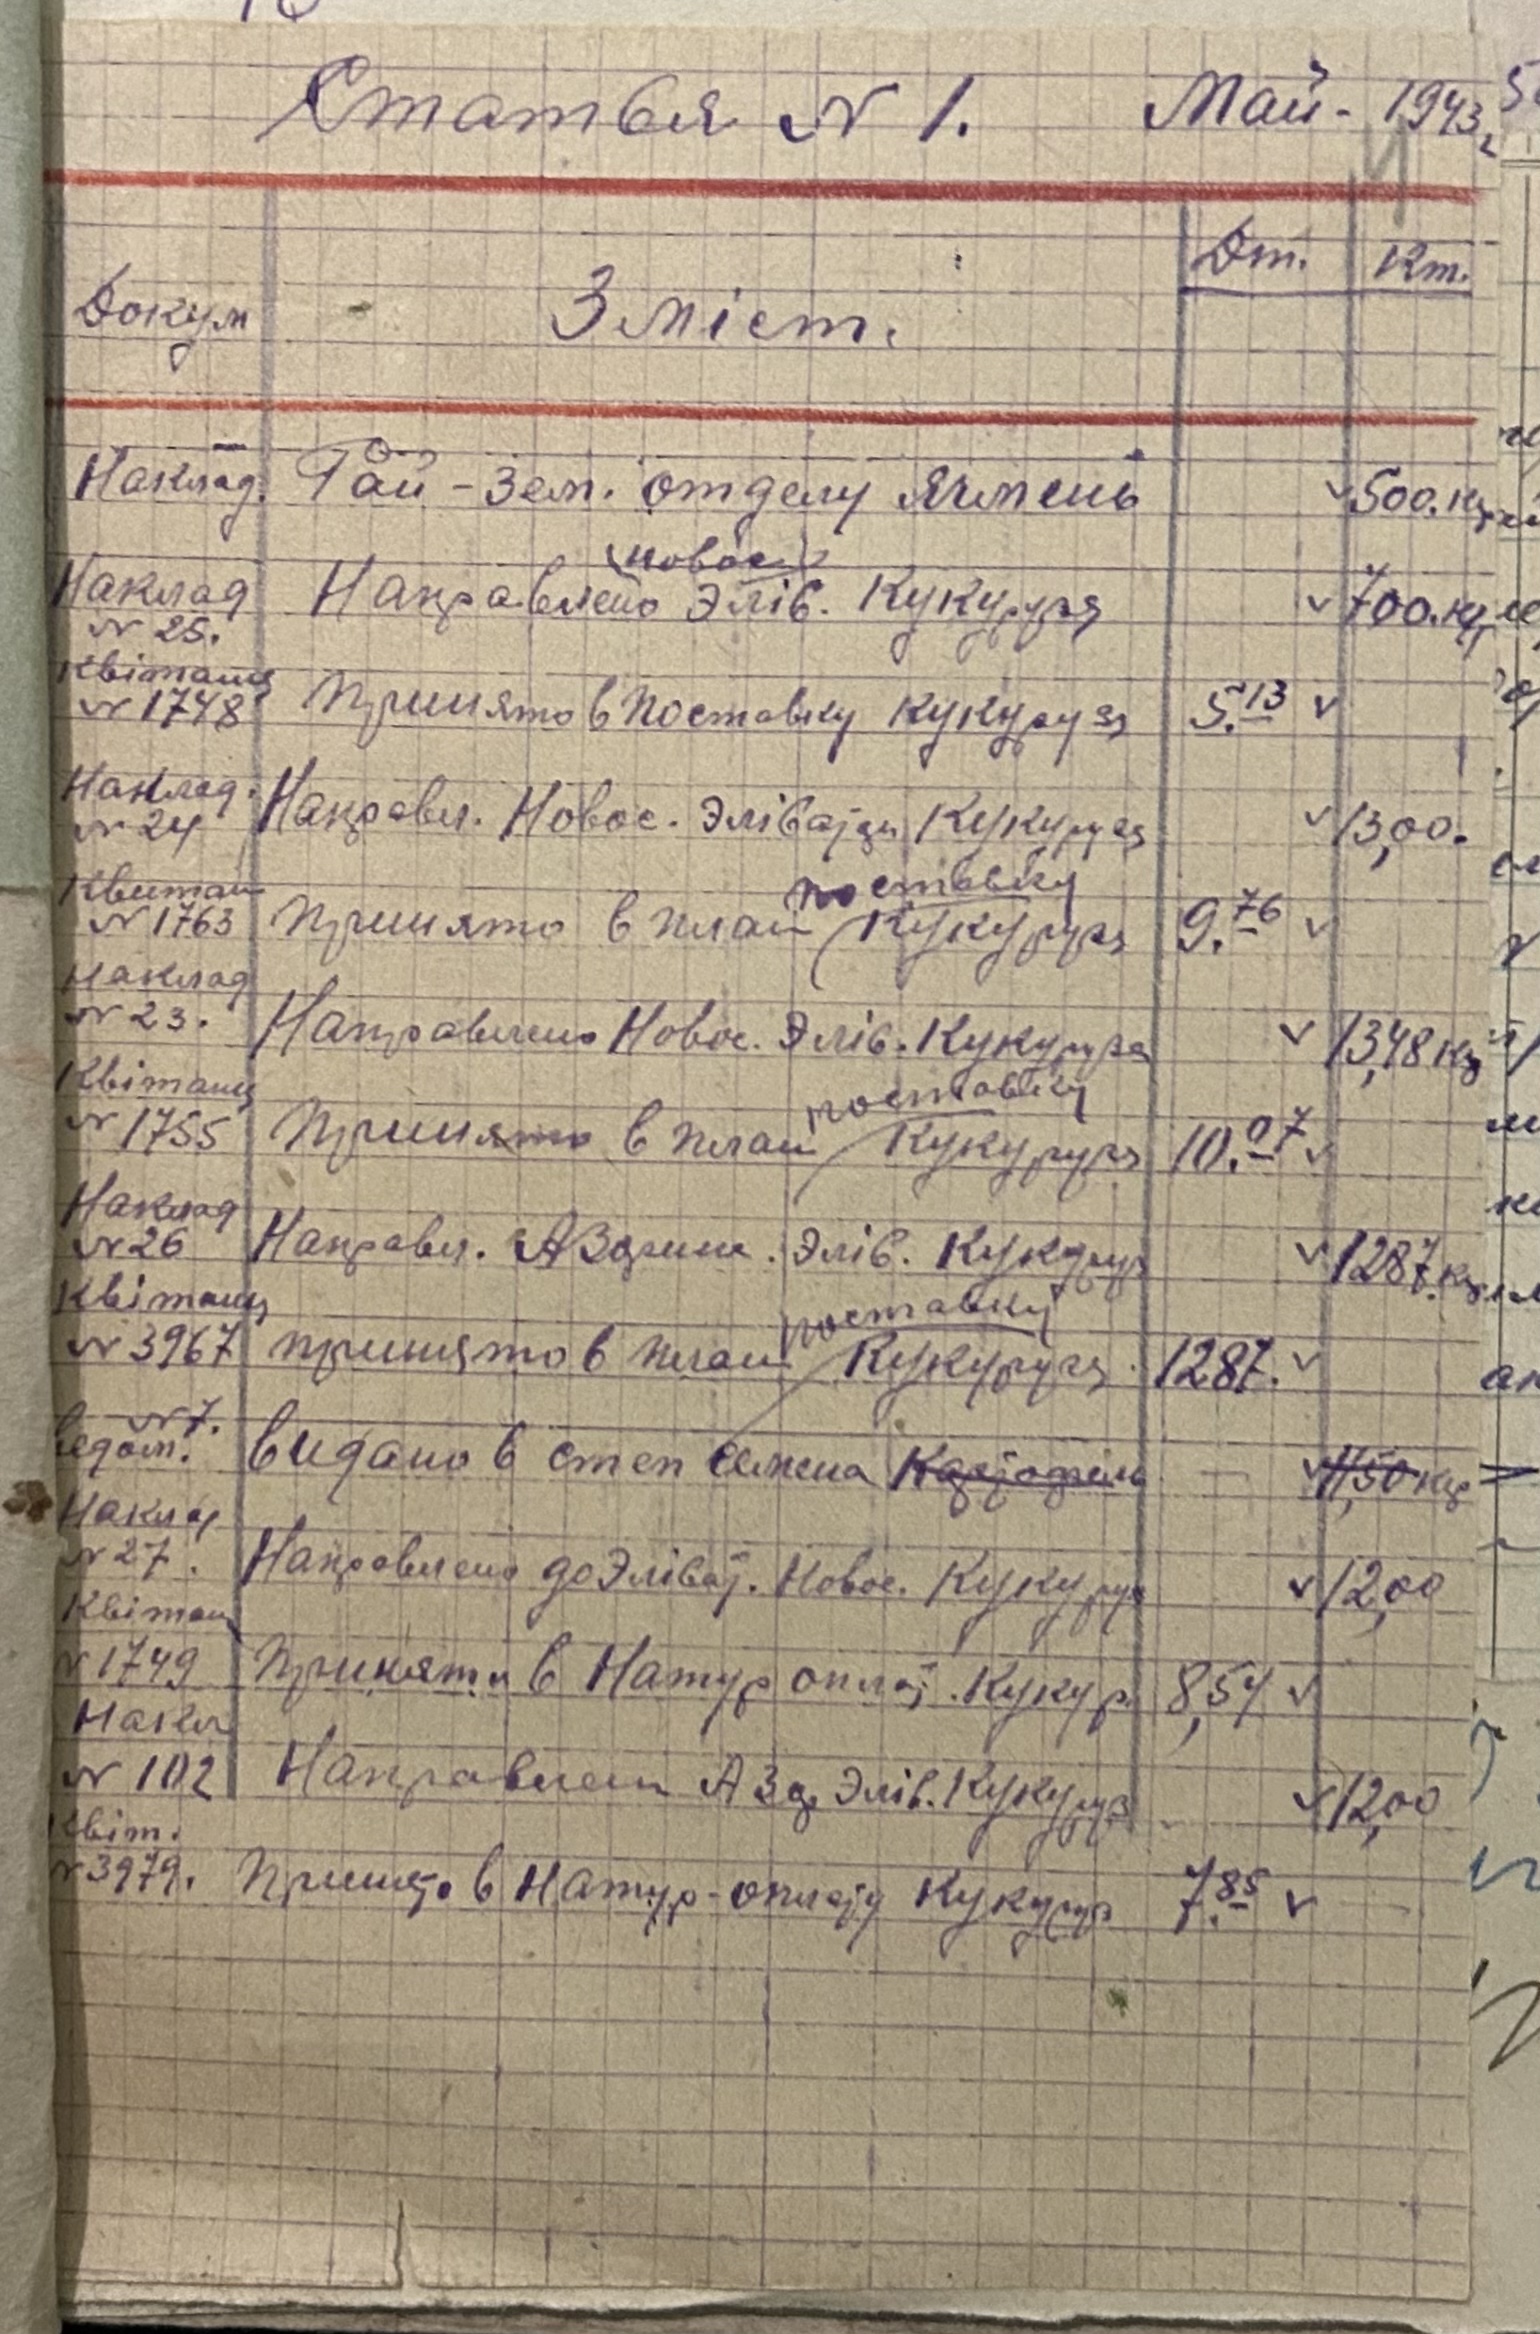 Статья № 1. Май - 1943 г
Докум Зміст. Дт. Кт.
Наклад. Рай - Зем. отделу Ячмень 500. кг
(новос.)
Наклад Направлено Элів. Кукуруза 700. кг
№ 25.
Квітанц
№ 1748 Принято в поставку Кукуруза 5.13
Наклад.
№ 24 Направл. Новос. Элівацзи Кукуруза 13,00.
поставку
Квитан
№ 1763 Принято в план Кукуруза 9.76
Наклад
№ 23. Направлено Новос. Элів. Кукуруза 13,48 кг
Квітанц поставку
№ 1755 Принято в план Кукуруза 10.07
Наклад
№ 26 Направл. Элів. Кукурур 1287. кг
Квітанц поставку
№ 3967 принято в план Кукуруза 1287.
№ 7.
Ведом. Видано в степ семена 11,50 кг
Наклад
№ 27. Направлено до Эліват. Новос. Кукуруз 12,00
Квітанц
№ 1749 Принято в Натур оплат. Кукур. 8,54
Накл
№ 102 Направлен Азд. Элів. Кукуруз 12,00
Квіт.
№ 3979. Принято в Натур-оплату Кукуруз 7.85